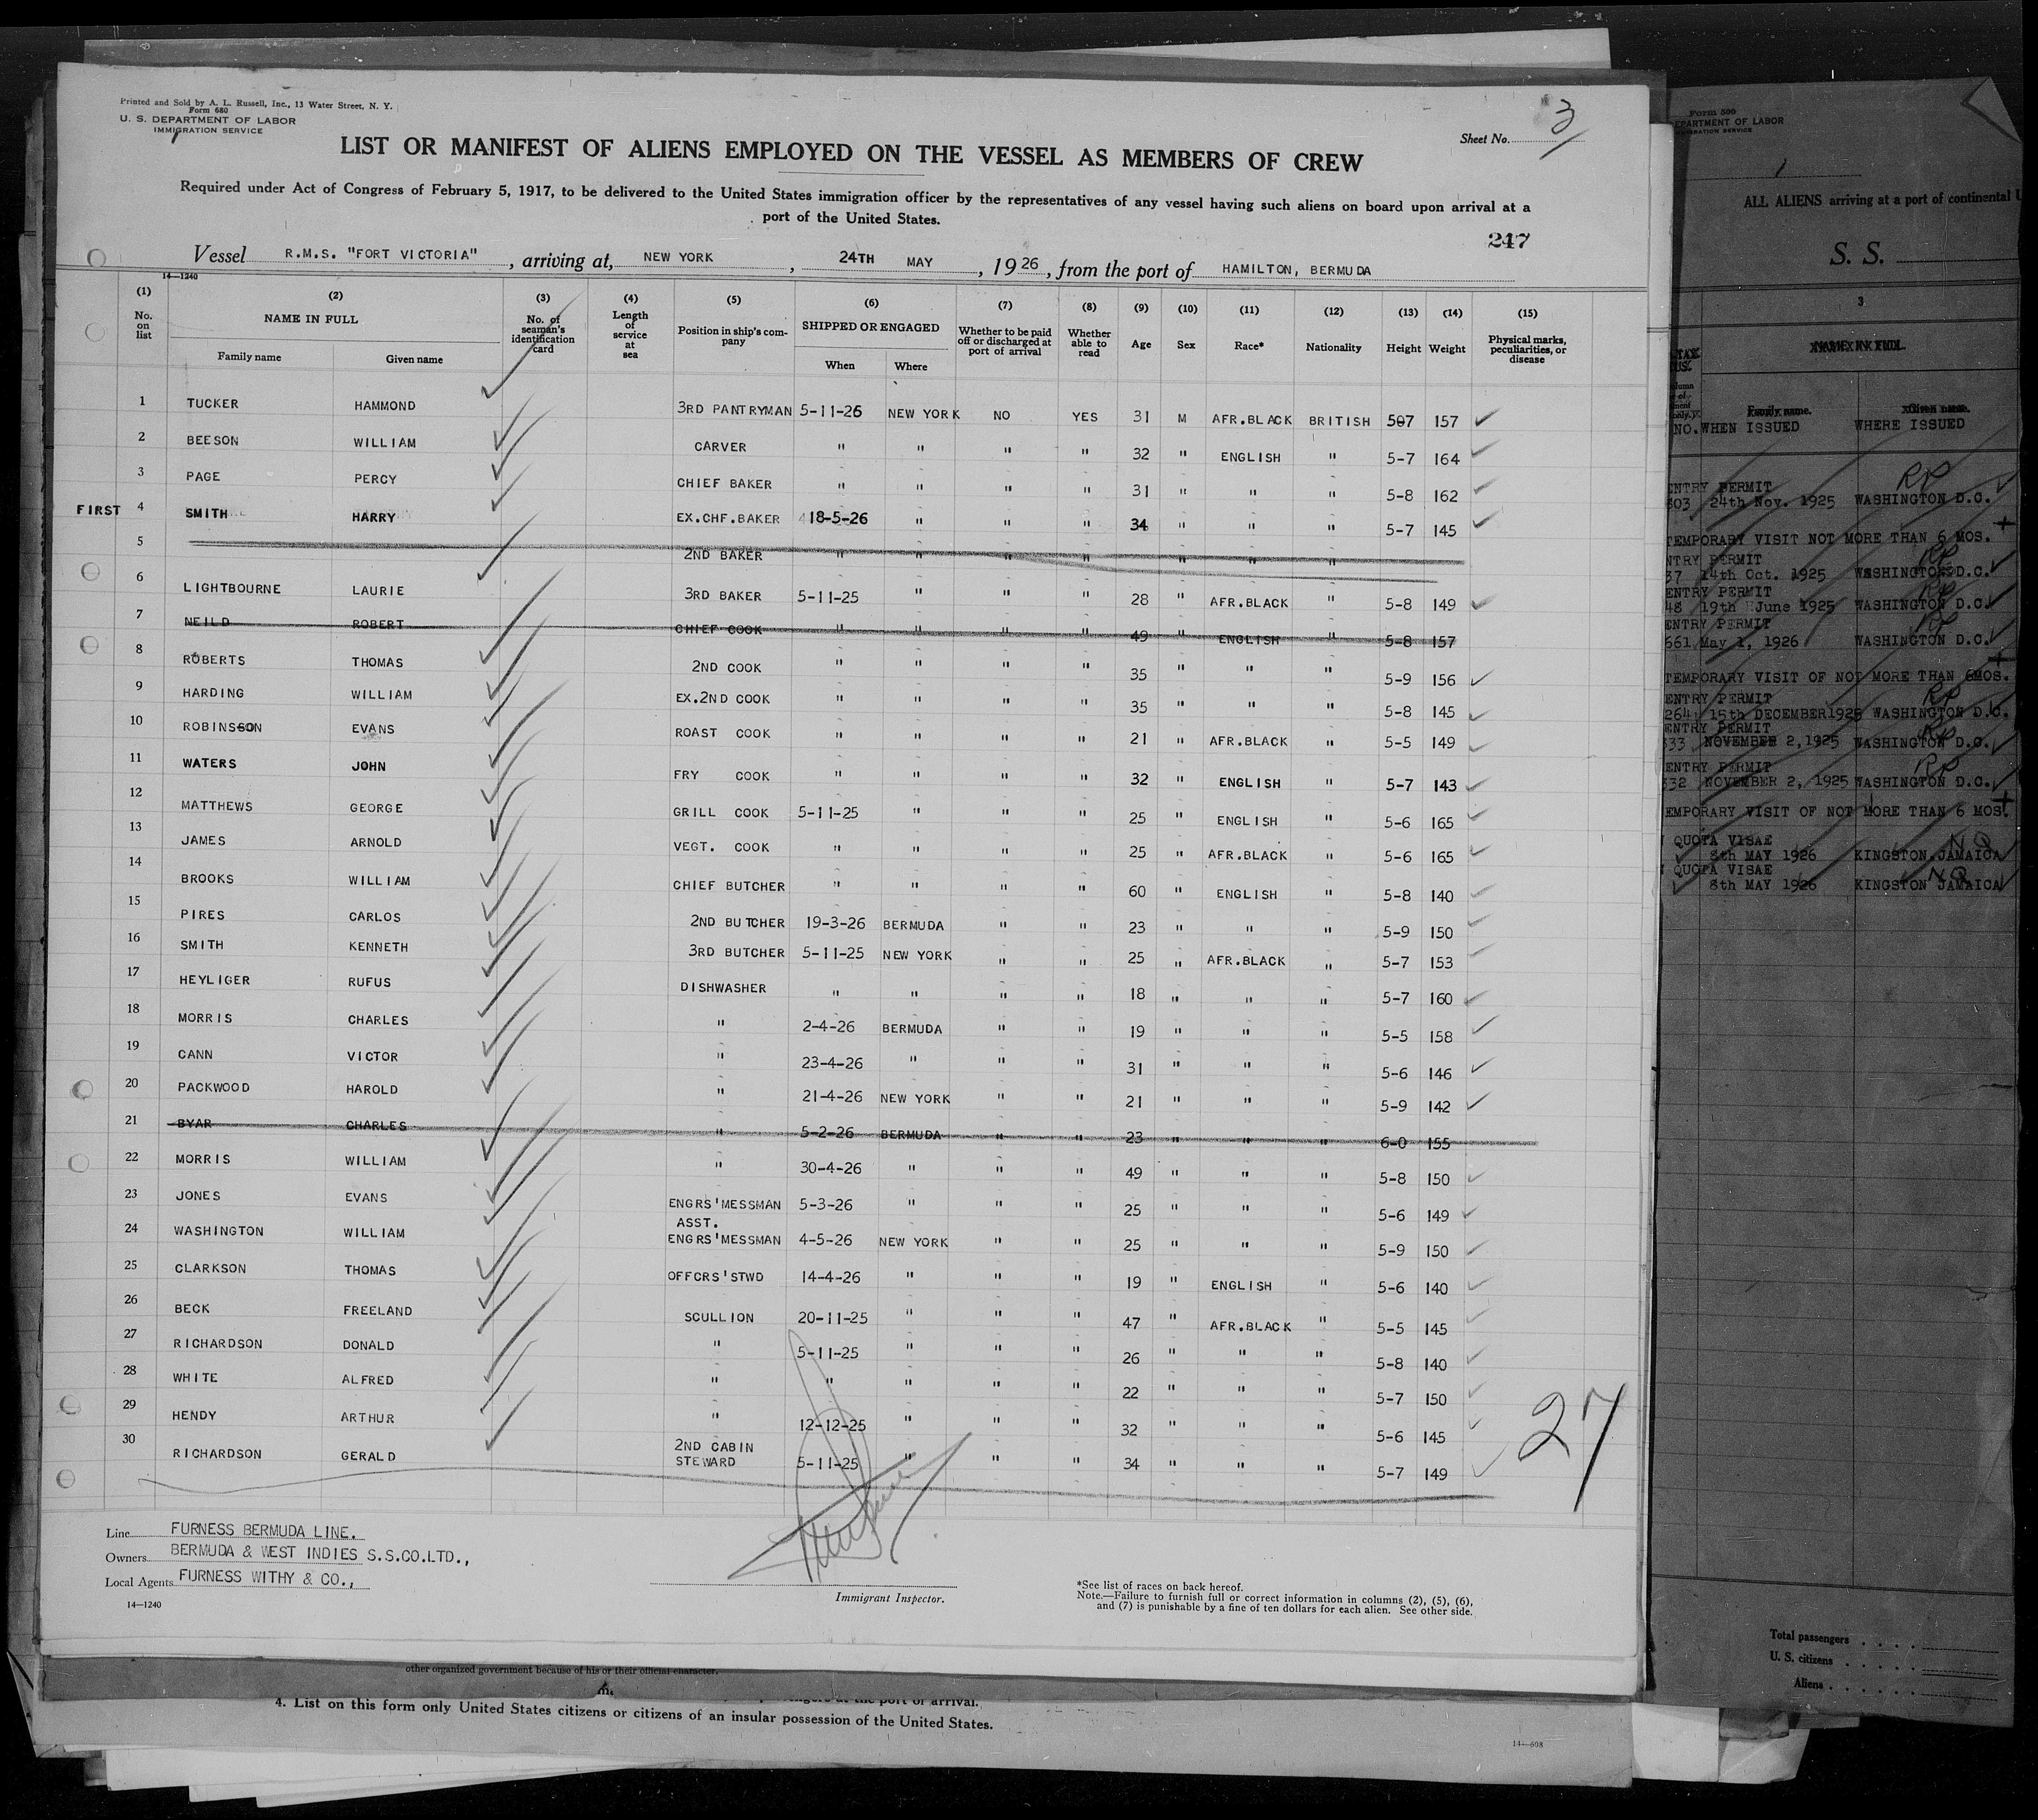 Printed and Sold by A. L. Russell, Inc., 13 Water Street, N. Y.
Form 680
U. S. DEPARTMENT OF LABOR
IMMIGRATION SERVICE
Sheet No. 3
LIST OR MANIFEST OF ALIENS EMPLOYED ON THE VESSEL AS MEMBERS OF CREW
Required under Act of Congress of February 5, 1917, to be delivered to the United States immigration officer by the representatives of any vessel having such aliens on board upon arrival at a
port of the United States.
247
Vessel R.M.S. "FORT VICTORIA", arriving at, NEW YORK, 24TH MAY, 1926, from the port of HAMILTON, BERMUDA
14—1240
(1) (2) (3) (4) (5) (6) (7) (8) (9) (10) (11) (12) (13) (14) (15)
No. on list NAME IN FULL No. of seaman's identification card Length of service at sea Position in ship's company SHIPPED OR ENGAGED Whether to be paid off or discharged at port of arrival Whether able to read Age Sex Race* Nationality Height Weight Physical marks, peculiarities, or disease
Family name Given name When Where
1 TUCKER HAMMOND 3RD PANTRYMAN 5-11-25 NEW YORK NO YES 31 M AFR.BLACK BRITISH 507 157
2 BEESON WILLIAM CARVER " " " " 32 " ENGLISH " 5-7 164
3 PAGE PERCY CHIEF BAKER " " " " 31 " " " 5-8 162
FIRST 4 SMITH HARRY EX.CHF.BAKER 18-5-26 " " " 34 " " " 5-7 145
5 2ND BAKER " " " " " "
6 LIGHTBOURNE LAURIE 3RD BAKER 5-11-25 " " " 28 " AFR.BLACK " 5-8 149
7 NEILD ROBERT CHIEF COOK " " " " 49 " ENGLISH " 5-8 157
8 ROBERTS THOMAS 2ND COOK " " " " 35 " " " 5-9 156
9 HARDING WILLIAM EX.2ND COOK " " " " 35 " " " 5-8 145
10 ROBINSSON EVANS ROAST COOK " " " " 21 " AFR.BLACK " 5-5 149
11 WATERS JOHN FRY COOK " " " " 32 " ENGLISH " 5-7 143
12 MATTHEWS GEORGE GRILL COOK 5-11-25 " " " 25 " ENGLISH " 5-6 165
13 JAMES ARNOLD VEGT. COOK " " " " 25 " AFR.BLACK " 5-6 165
14 BROOKS WILLIAM CHIEF BUTCHER " " " " 60 " ENGLISH " 5-8 140
15 PIRES CARLOS 2ND BUTCHER 19-3-26 BERMUDA " " 23 " " " 5-9 150
16 SMITH KENNETH 3RD BUTCHER 5-11-25 NEW YORK " " 25 " AFR.BLACK " 5-7 153
17 HEYLIGER RUFUS DISHWASHER " " " " 18 " " " 5-7 160
18 MORRIS CHARLES " 2-4-26 BERMUDA " " 19 " " " 5-5 158
19 CANN VICTOR " 23-4-26 " " " 31 " " " 5-6 146
20 PACKWOOD HAROLD " 21-4-26 NEW YORK " " 21 " " " 5-9 142
21 BYAR CHARLES " 5-2-26 BERMUDA " " 23 " " " 6-0 155
22 MORRIS WILLIAM " 30-4-26 " " " 49 " " " 5-8 150
23 JONES EVANS ENGRS'MESSMAN 5-3-26 " " " 25 " " " 5-6 149
24 WASHINGTON WILLIAM ASST. ENGRS'MESSMAN 4-5-26 NEW YORK " " 25 " " " 5-9 150
25 CLARKSON THOMAS OFFCRS'STWD 14-4-26 " " " 19 " ENGLISH " 5-6 140
26 BECK FREELAND SCULLION 20-11-25 " " " 47 " AFR.BLACK " 5-5 145
27 RICHARDSON DONALD " 5-11-25 " " " 26 " " " 5-8 140
28 WHITE ALFRED " " " " " 22 " " " 5-7 150
29 HENDY ARTHUR " 12-12-25 " " " 32 " " " 5-6 145
30 RICHARDSON GERALD 2ND CABIN STEWARD 5-11-25 " " " 34 " " " 5-7 149
27
Line FURNESS BERMUDA LINE.
Owners BERMUDA & WEST INDIES S.S.CO.LTD.,
Local Agents FURNESS WITHY & CO.,
14—1240
Immigrant Inspector.
*See list of races on back hereof.
Note.—Failure to furnish full or correct information in columns (2), (5), (6),
and (7) is punishable by a fine of ten dollars for each alien. See other side.
other organized government because of his or their official character.
at the port of arrival.
4. List on this form only United States citizens or citizens of an insular possession of the United States.
14—608
Form 500
DEPARTMENT OF LABOR
IMMIGRATION SERVICE
ALL ALIENS arriving at a port of continental U
S. S.
3
NAME IN FULL
Family name. Given name.
NO. WHEN ISSUED WHERE ISSUED
ENTRY PERMIT
24th Nov. 1925 WASHINGTON D.C.
TEMPORARY VISIT NOT MORE THAN 6 MOS.
ENTRY PERMIT
37 14th Oct. 1925 WASHINGTON D.C.
ENTRY PERMIT
48 19th June 1925 WASHINGTON D.C.
ENTRY PERMIT
561 May 1, 1926 WASHINGTON D.C.
TEMPORARY VISIT OF NOT MORE THAN 6MOS.
ENTRY PERMIT
264 15th DECEMBER1925 WASHINGTON D.C.
ENTRY PERMIT
333 NOVEMBER 2,1925 WASHINGTON D.C.
ENTRY PERMIT
332 NOVEMBER 2, 1925 WASHINGTON D.C.
TEMPORARY VISIT OF NOT MORE THAN 6 MOS.
QUOTA VISAE
8th MAY 1926 KINGSTON JAMAICA
QUOTA VISAE
8th MAY 1926 KINGSTON JAMAICA
Total passengers
U. S. citizens
Aliens